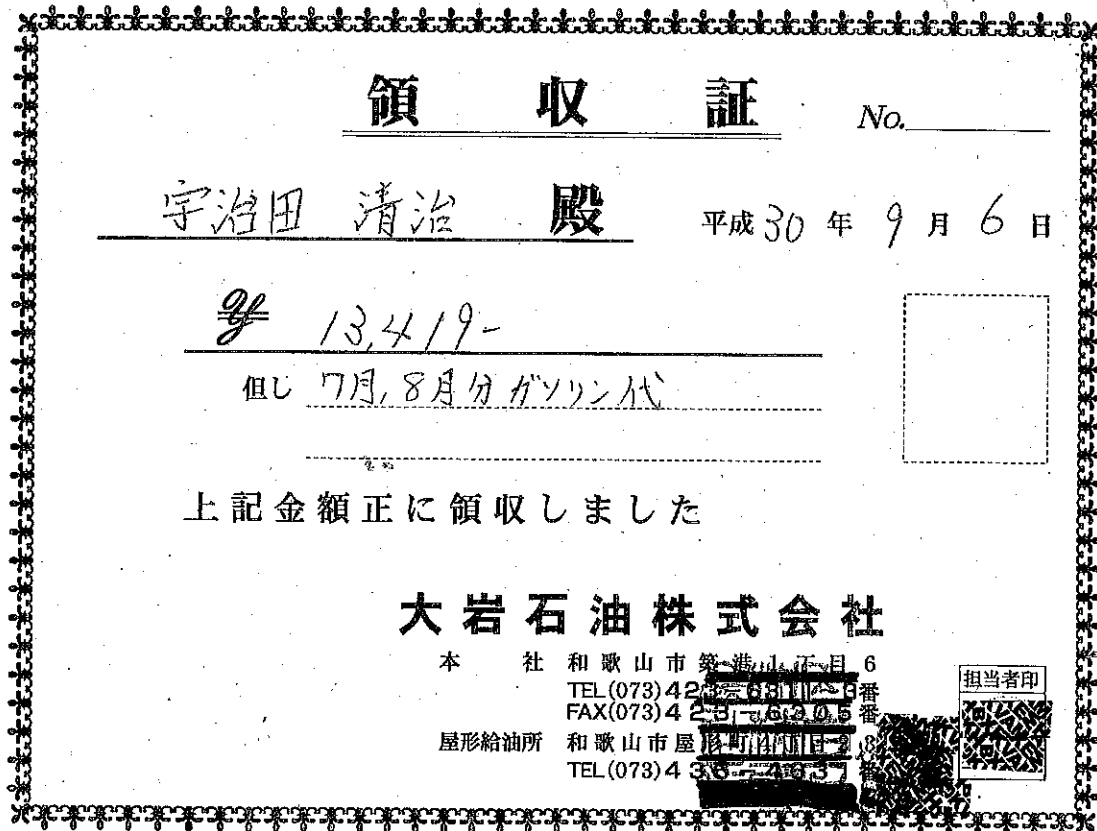 領収証 No.
宇治田 清治 殿 平成30年9月6日
¥ 13,419-
但し 7月,8月分ガソリン代
上記金額正に領収しました
大岩石油株式会社
本社 和歌山市築港1丁目6
TEL(073)423-6311~3番
FAX(073)423-6305番
屋形給油所 和歌山市屋形町
TEL(073)436-4637番
担当者印